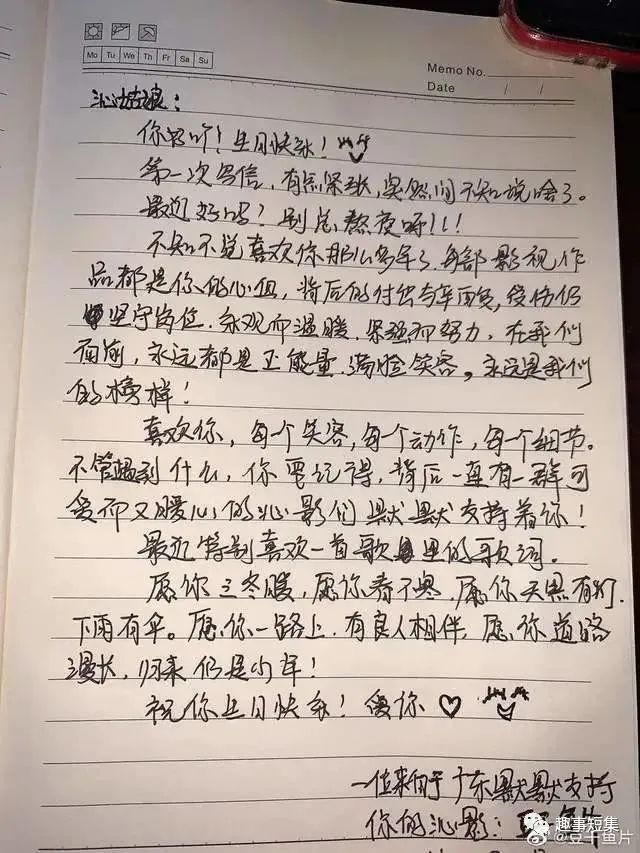 Mo Tu We Th Fr Sa Su
Memo No.
Date / /
沁姑娘：
你好吖！生日快乐！
第一次写信，有点紧张，突然间不知说啥了。
最近好吗？别总熬夜呀！！！
不知不觉喜欢你那么多年了，每部影视作
品都是你的心血，背后的付出与辛酸，受伤仍
坚守岗位，乐观而温暖，坚强而努力，在我们
面前，永远都是正能量，满脸笑容。永远是我们
的榜样！
喜欢你，每一个笑容，每一个动作，每一个细节。
不管遇到什么，你要记得，背后一直有一群可
爱而又暖心的沁影们默默支持着你！
最近特别喜欢一首歌里的歌词。
愿你三冬暖，愿你春不寒，愿你天黑有灯，
下雨有伞。愿你一路上，有良人相伴，愿你道路
漫长，归来仍是少年！
祝你生日快乐！爱你
一位来自于广东默默支持
你的沁影：
趣事短集
@豆干鱼片